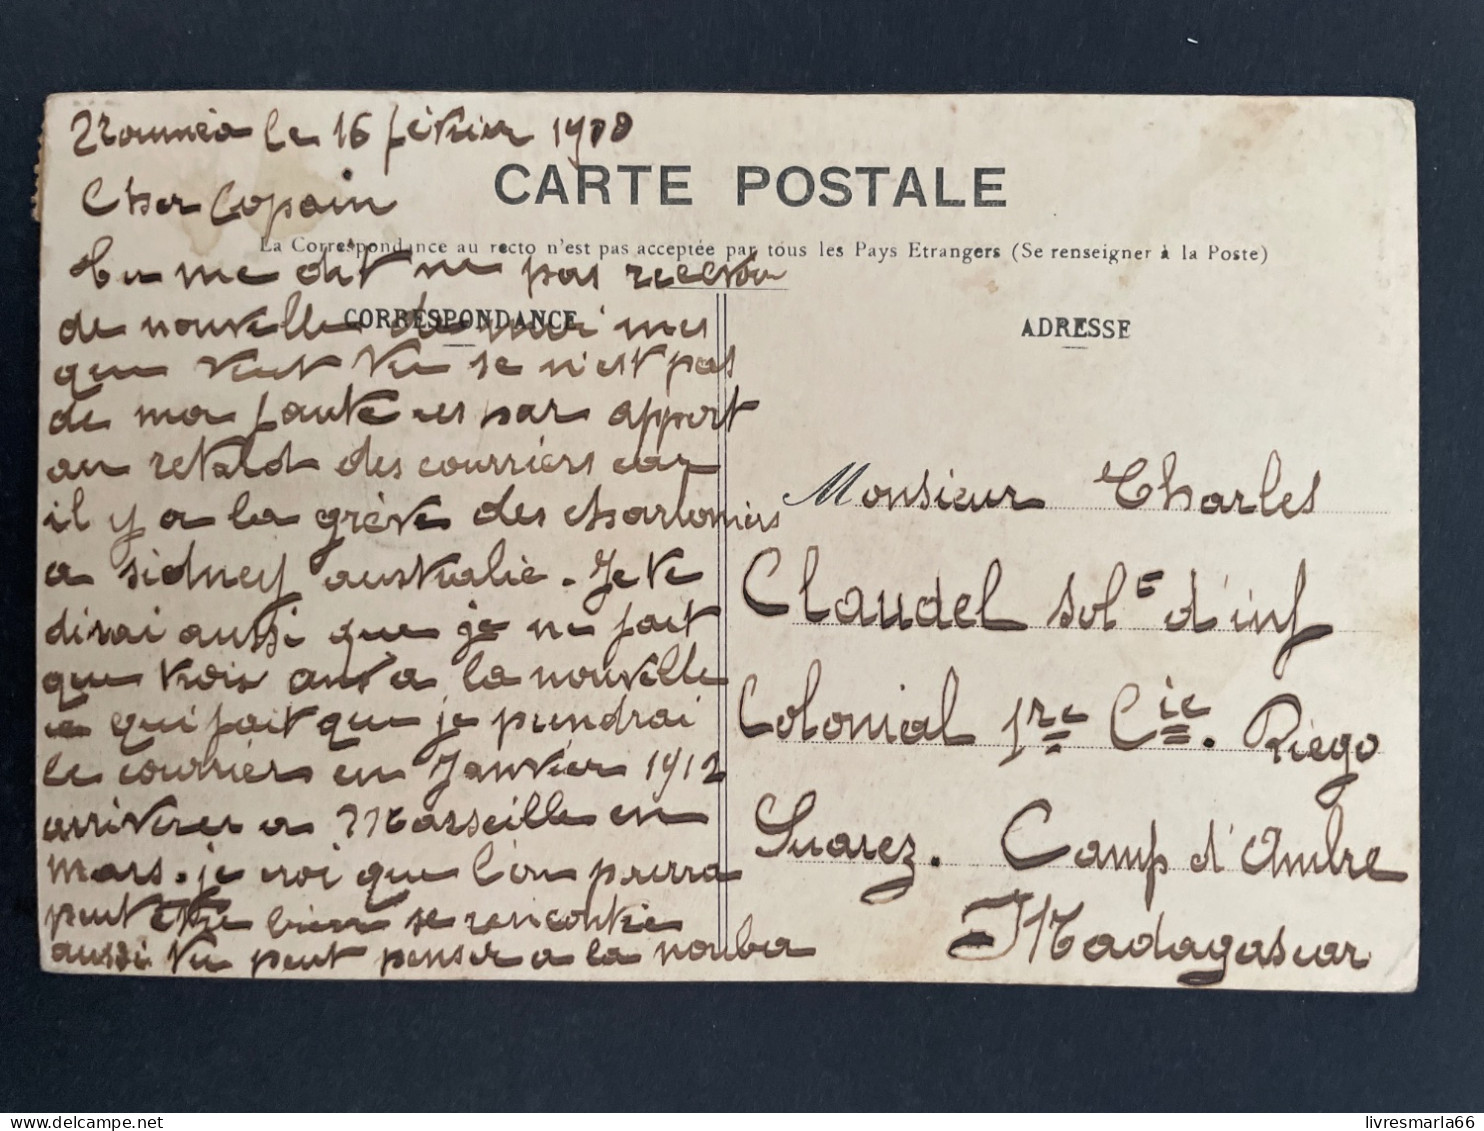 Nouméa le 16 février 1910
Cher Copain
CARTE POSTALE
La Correspondance au recto n'est pas acceptée par tous les Pays Etrangers (Se renseigner à la Poste)
tu me dit ne pas recevoir
de nouvelle de moi mes
CORRESPONDANCE
que veut tu se n'est pas
de ma faute ses par apport
au retard des courriers car
il y a la grève des charboniers
a sidney australie. Je te
dirai aussi que je ne fait
que trois ans a la nouvelle
ce qui fait que je prendrai
le courrier en Janvier 1912
arriverer a Marseille en
mars. je croi que l'on pourra
peut être bien se rencontre
aussi tu peut penser a la nouba
ADRESSE
Monsieur Charles
Claudel solt d'inf
Colonial 1re Cie. Diégo
Suarez. Camp d'Ambre
Madagascar
livresmarla66